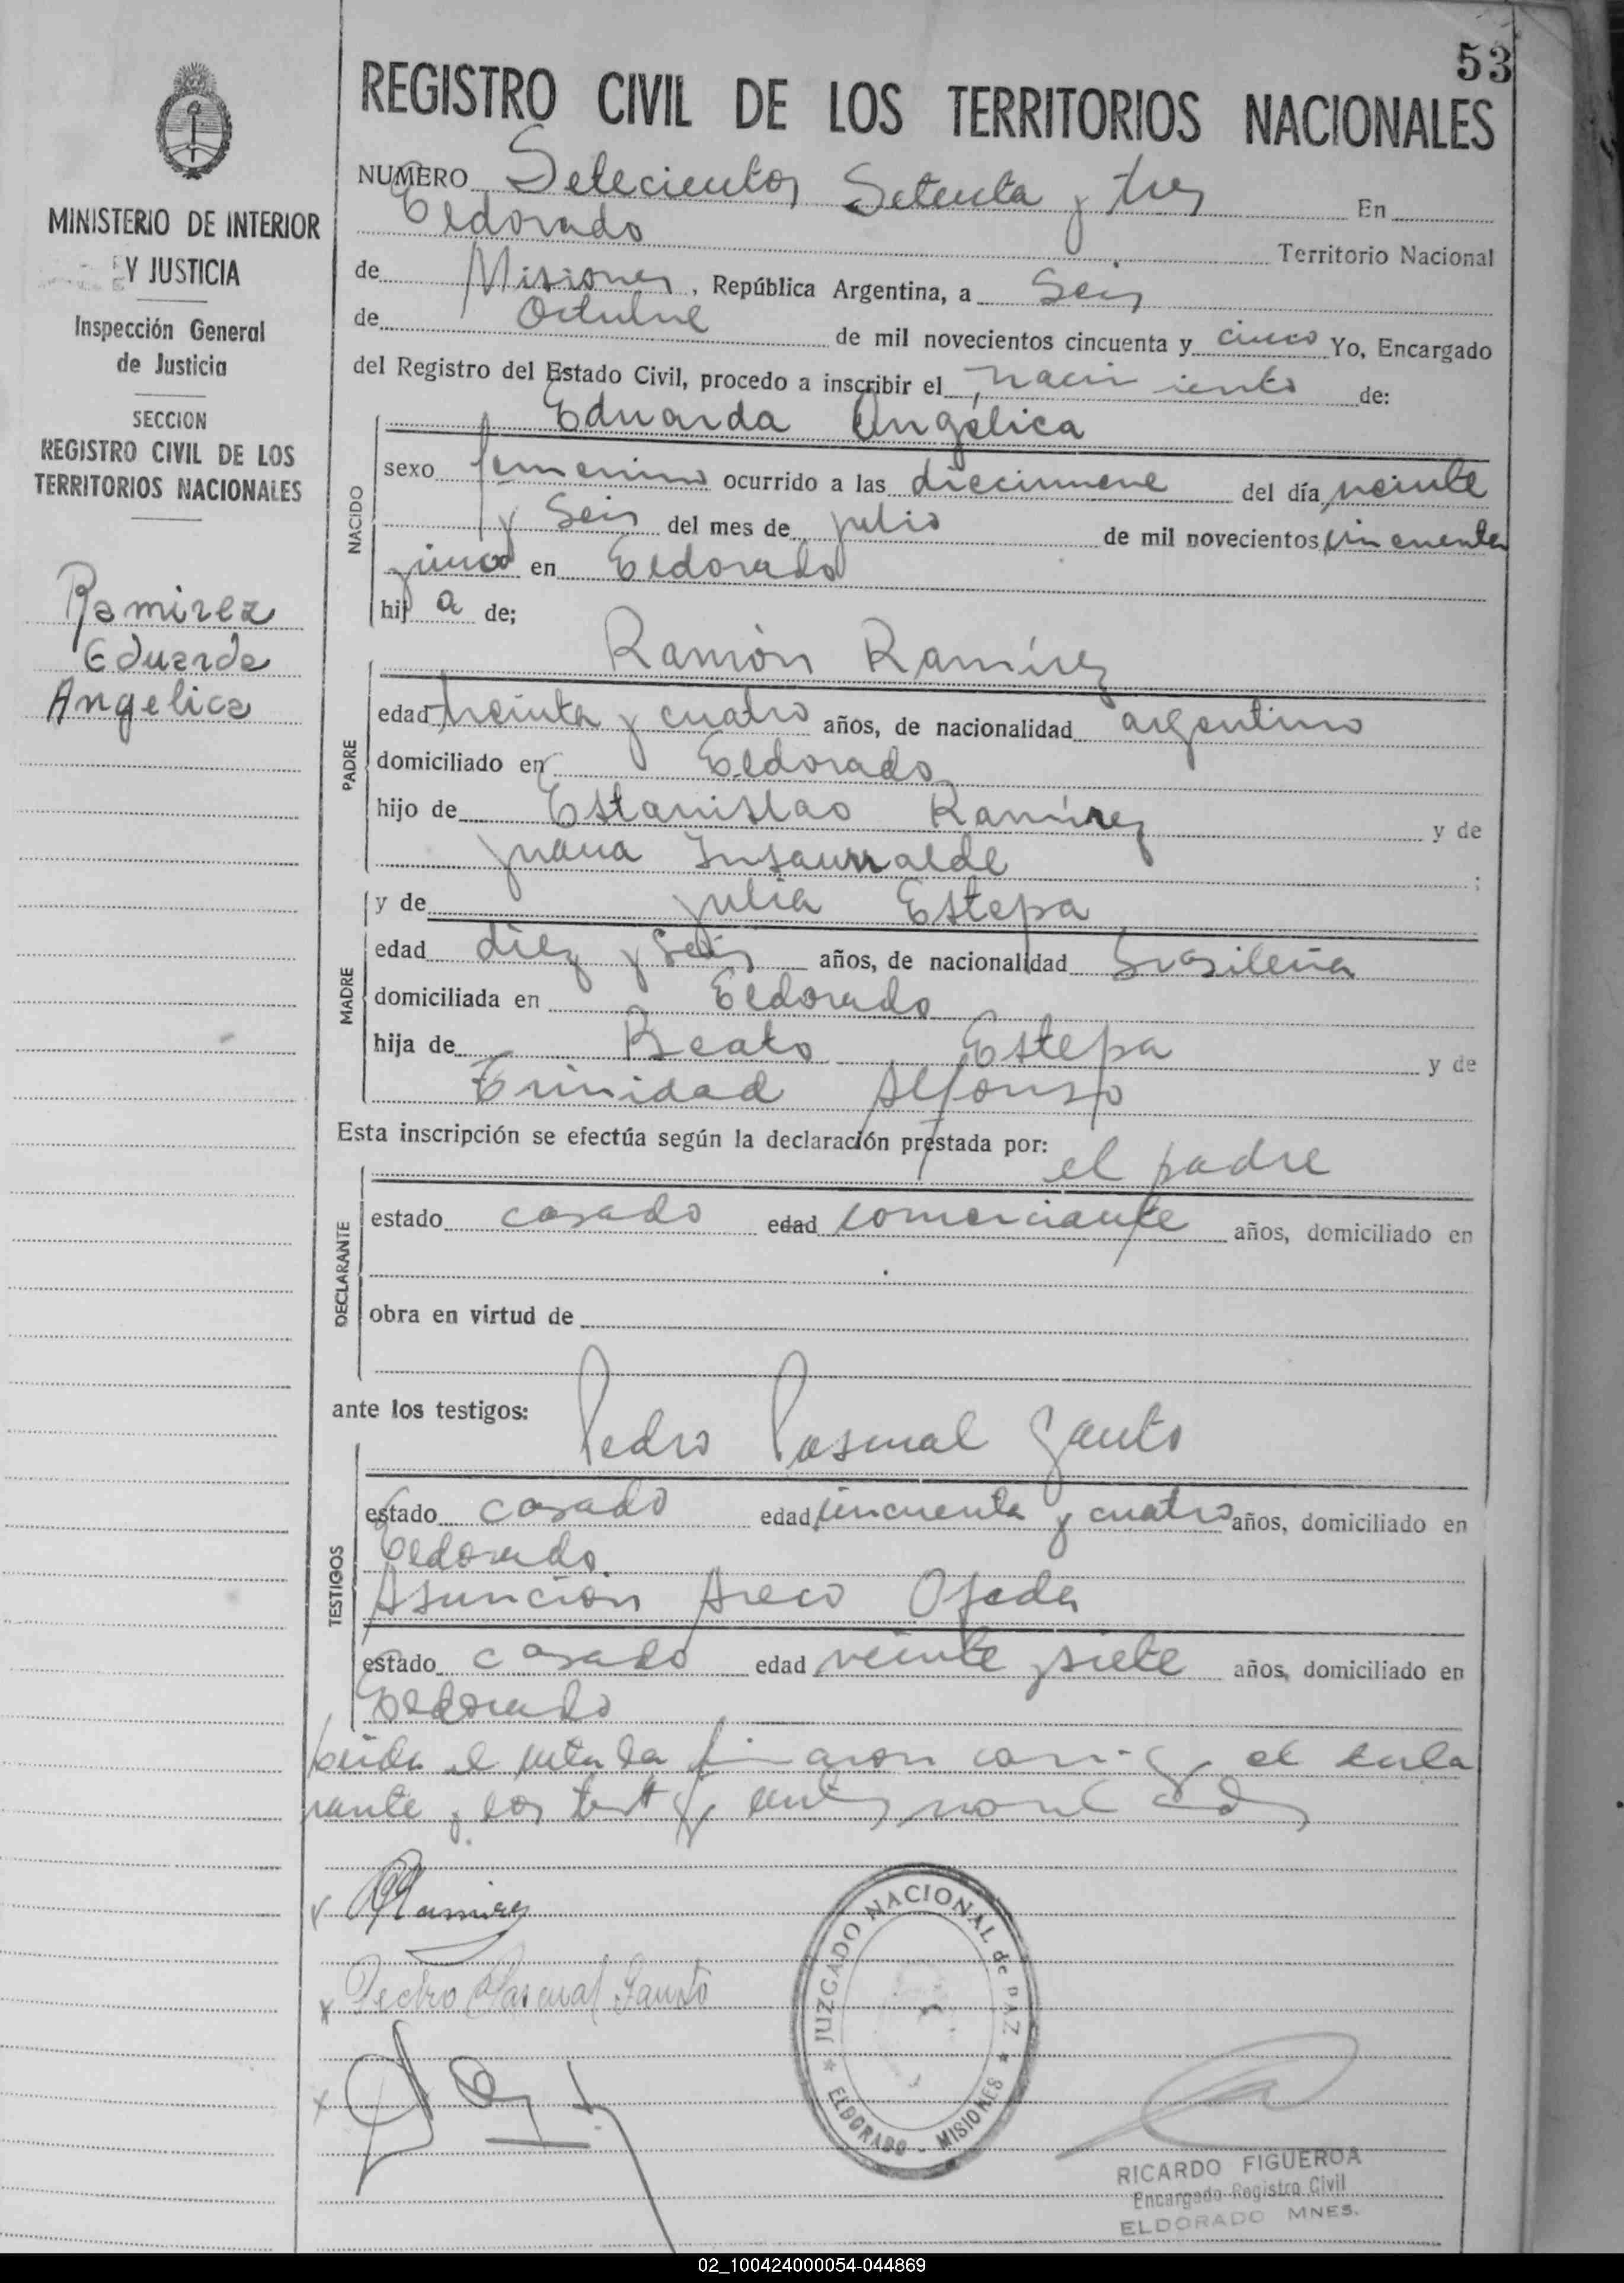 53
REGISTRO CIVIL DE LOS TERRITORIOS NACIONALES
MINISTERIO DE INTERIOR
Y JUSTICIA
Inspección General
de Justicia
SECCION
REGISTRO CIVIL DE LOS
TERRITORIOS NACIONALES
Ramirez
Eduarda
Angelica
NUMERO Setecientos Setenta y tres En
Eldorado Territorio Nacional
de Misiones, República Argentina, a Seis
de Octubre de mil novecientos cincuenta y cinco Yo, Encargado
del Registro del Estado Civil, procedo a inscribir el nacimiento de:
Eduarda Angélica
NACIDO
sexo femenino ocurrido a las diecinueve del día veinte
y Seis del mes de julio de mil novecientos cincuenta
y cinco en Eldorado
hij a de;
Ramón Ramírez
PADRE
edad treinta y cuatro años, de nacionalidad argentino
domiciliado en Eldorado
hijo de Estanislao Ramírez y de
Juana Insaurralde ;
y de Julia Estepa
MADRE
edad diez y Seis años, de nacionalidad brasileña
domiciliada en Eldorado
hija de Beato Estepa y de
Trinidad Alfonso
Esta inscripción se efectúa según la declaración prestada por:
el padre
DECLARANTE
estado casado edad comerciante años, domiciliado en
obra en virtud de
ante los testigos: Pedro Pascual Gauto
TESTIGOS
estado casado edad cincuenta y cuatro años, domiciliado en
Eldorado
Asunción Areco Ojeda
estado casado edad veinte y siete años, domiciliado en
Eldorado
Leída el acta la firmaron conmigo el decla
rante y los testigos antes nombrados
Ramirez
Pedro Pascual Gauto
JUZGADO NACIONAL de PAZ
ELDORADO - MISIONES
RICARDO FIGUEROA
Encargado Registro Civil
ELDORADO MNES.
02_100424000054-044869